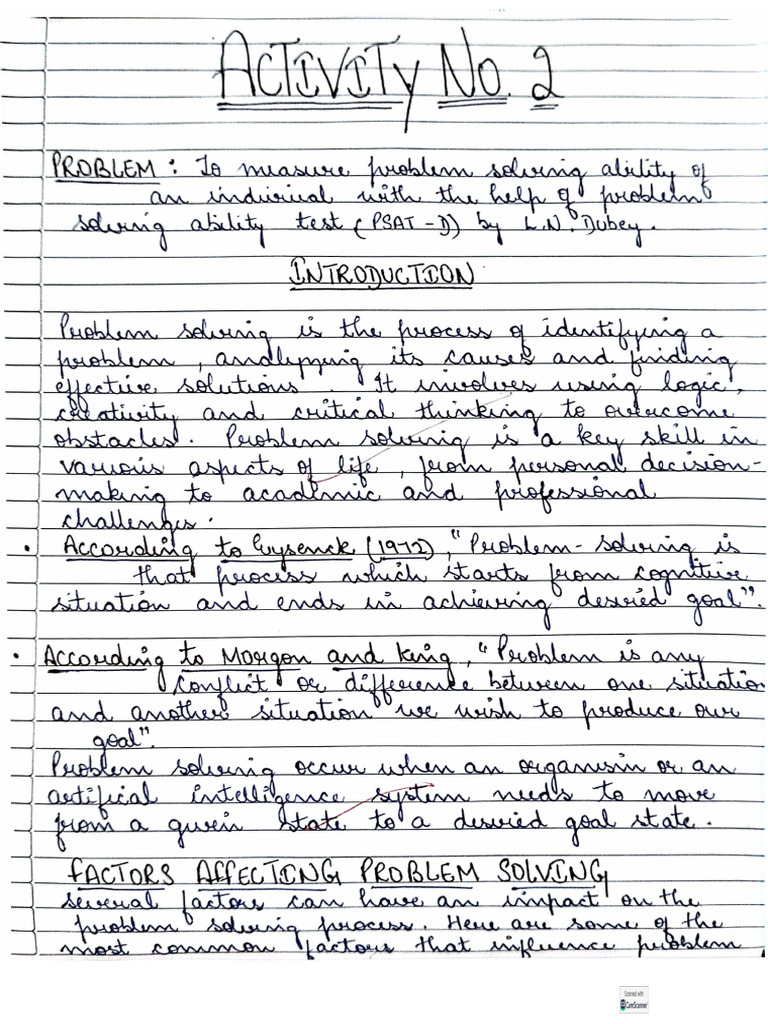 ACTIVITY NO. 2
PROBLEM : To measure problem solving ability of
an indiviral with the help of problem
solving ability test (PSAT-D) by L.N. Dubey.
INTRODUCTION
Problem solving is the process of identifying a
problem , analyzing its causes and finding
effective solutions . It involves using logic,
creativity and critical thinking to overcome
obstacles. Problem solving is a key skill in
various aspects of life , from personal decision-
making to academic and professional
challenges.
• According to Eysenck (1972), "Problem-solving is
that process which starts from cognitive
situation and ends in achieving desried goal".
• According to Morgon and King, "Problem is any
conflict or difference between one situation
and another situation we wish to produce our
goal".
Problem solving occur when an organism or an
artifical intelligence system needs to move
from a given state to a desried goal state.
FACTORS AFFECTING PROBLEM SOLVING
several factors can have an impact on the
problem solving process. Here are some of the
most common factors that influence problem
Scanned with
CamScanner